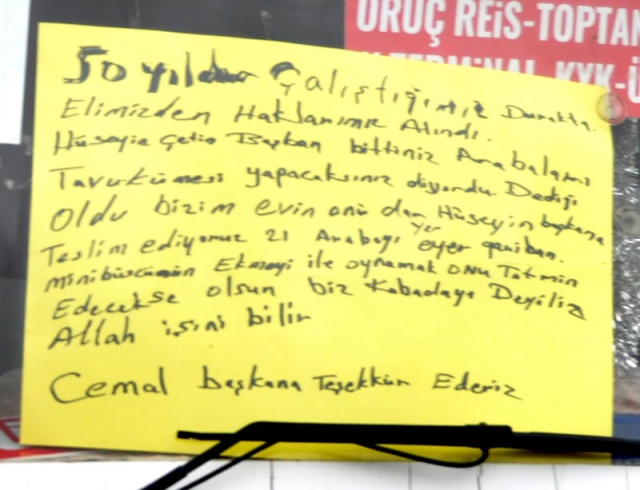 ORUÇ REİS-TOPTAN
TERMİNAL KYK-Ü
50 yıldır Çalıştığımız Durakta.
Elimizden Haklarımız Alındı.
Hüseyin Çetin Başkan bittiniz Arabaları
Tavukümesi yapacaksınız diyordu Dediği
Oldu bizim evin önü dar Hüseyin başkana
yer
Teslim ediyoruz 21 Arabayı eyer gariban.
minibüscünün Ekmeyi ile oynamak onu Tatmin
Edecekse olsun biz Kabadayı Deyiliz
Allah işini bilir
Cemal başkana Teşekkür Ederiz